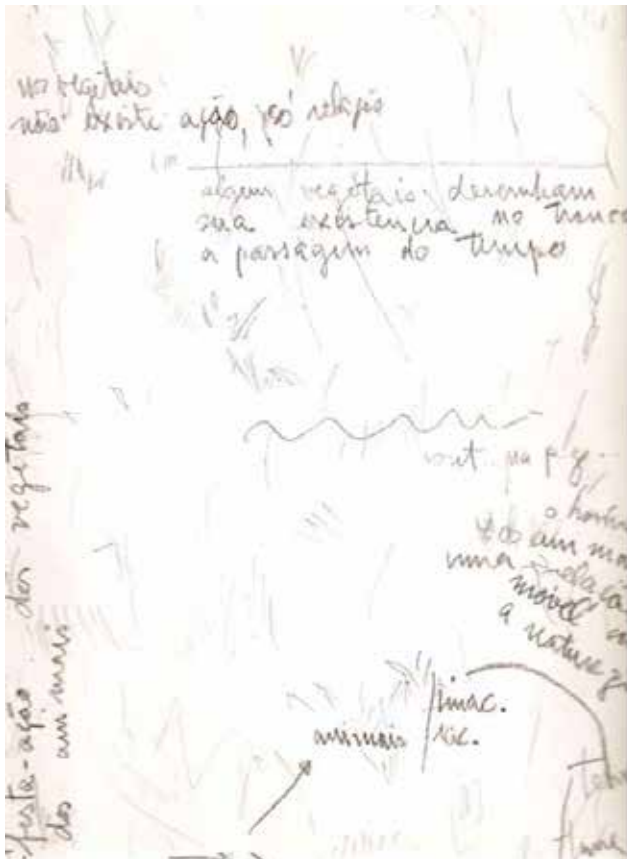 nos vegetais
não existe ação, só relação
algum vegetais desenham
sua existencia no tronco
a passagem do tempo
na p
o
uma relaçã
móvel
a naturez
irrac.
animais rac.
dos vegetais
dos animais